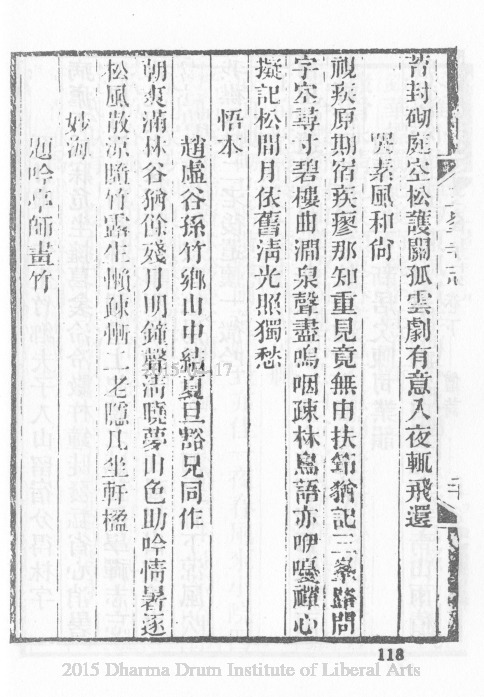 三峯寺志
苔封砌庭空松護關孤雲劇有意入夜輒飛還
哭素風和尚
視疾原期宿疾瘳那知重見竟無由扶筇猶記三峯路問
字空尋寸碧樓曲澗泉聲盡嗚咽疎林鳥語亦咿嚘禪心
擬記松間月依舊淸光照獨愁
悟本
趙虛谷孫竹鄕山中結夏旦豁兄同作
朝爽滿林谷猶餘殘月明鐘聲淸曉夢山色助吟情暑逐
松風散涼隨竹露生懶疎慚一老隱几坐軒楹
妙海
題吟亭師畫竹
118
2015 Dharma Drum Institute of Liberal Arts